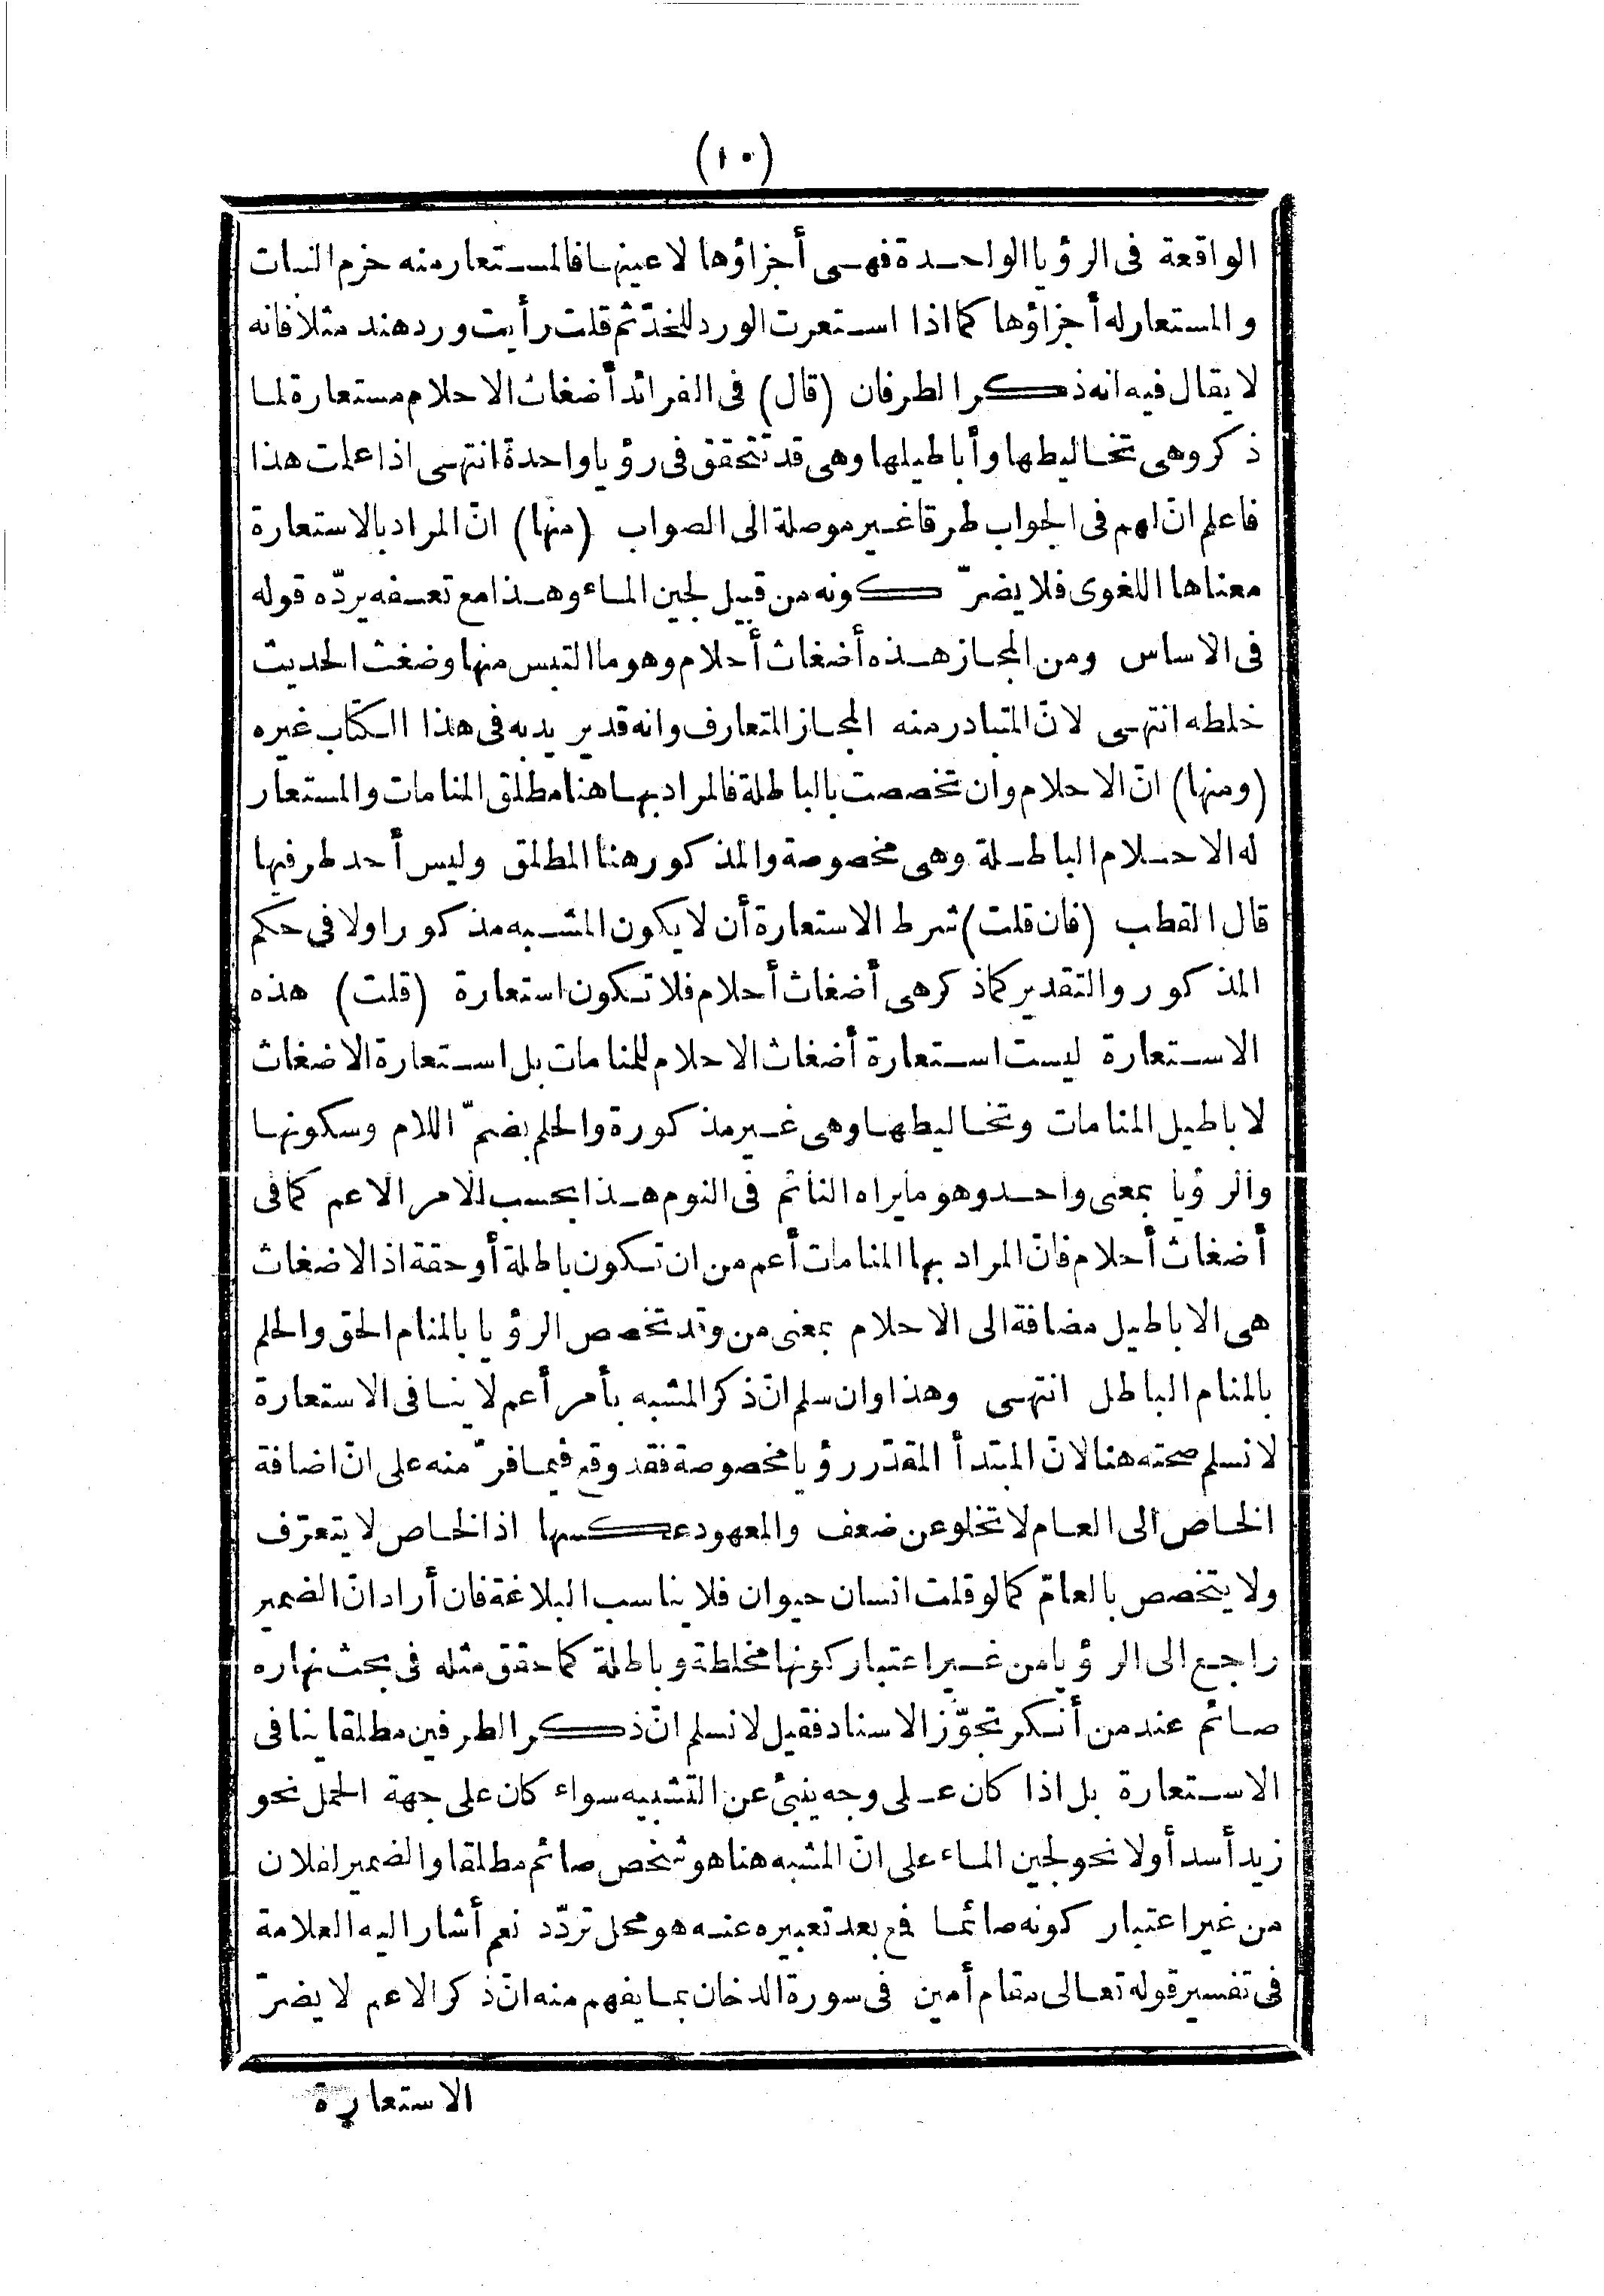 (١٠)
الواقعة فى الرؤيا الواحدة فهى أجزاؤها لا عينها فالمستعار منه حزم النبات
والمستعار له أجزاؤها كما اذا استعرت الورد للخدّ ثم قلت رأيت ورد هند مثلا فانه
لا يقال فيه انه ذكر الطرفان (قال) فى الفرائد أضغاث الاحلام مستعارة لما
ذكر وهى تخاليطها وأباطيلها وهى قد تتحقق فى رؤيا واحدة انتهى اذا علمت هذا
فاعلم انّ لهم فى الجواب طرقا غير موصلة الى الصواب (منها) انّ المراد بالاستعارة
معناها اللغوى فلا يضرّ كونه من قبيل لجين الماء وهذا مع تعسفه يردّه قوله
فى الاساس ومن المجاز هذه أضغاث أحلام وهو ما التبس منها وضغث الحديث
خلطه انتهى لانّ المتبادر منه المجاز المتعارف وانه قد يريد به فى هذا الكتاب غيره
(ومنها) انّ الاحلام وان تخصصت بالباطلة فالمراد بها هنا مطلق المنامات والمستعار
له الاحلام الباطلة وهى مخصوصة والمذكور هنا المطلق وليس أحد طرفيها
قال القطب (فان قلت) شرط الاستعارة أن لا يكون المشبه مذكورا ولا فى حكم
المذكور والتقدير كما ذكر هى أضغاث أحلام فلا تكون استعارة (قلت) هذه
الاستعارة ليست استعارة أضغاث الاحلام للمنامات بل استعارة الاضغاث
لاباطيل المنامات وتخاليطها وهى غير مذكورة والحلم بضمّ اللام وسكونها
والرؤيا بمعنى واحد وهو ما يراه النائم فى النوم هذا بحسب الامر الاعم كما فى
أضغاث أحلام فانّ المراد بها المنامات أعم من ان تكون باطلة أو حقة اذ الاضغاث
هى الاباطيل مضافة الى الاحلام بمعنى من وقد تخصص الرؤيا بالمنام الحق والحلم
بالمنام الباطل انتهى وهذا وان سلم انّ ذكر المشبه بأمر أعم لا ينافى الاستعارة
لا نسلم صحته هنا لانّ المبتدأ المقدّر رؤيا مخصوصة فقد وقع فيما فرّ منه على انّ اضافة
الخاص الى العام لا تخلو عن ضعف والمعهود عكسها اذ الخاص لا يتعرّف
ولا يتخصص بالعامّ كما لو قلت انسان حيوان فلا يناسب البلاغة فان أراد انّ الضمير
راجع الى الرؤيا من غير اعتبار كونها مخلطة وباطلة كما حقق مثله فى بحث نهاره
صائم عند من أنكر تجوّز الاسناد فقيل لا نسلم انّ ذكر الطرفين مطلقا ينافى
الاستعارة بل اذا كان على وجه ينبئ عن التشبيه سواء كان على جهة الحمل نحو
زيد أسد أولا نحو لجين الماء على انّ المشبه هنا هو شخص صائم مطلقا والضمير لفلان
من غير اعتبار كونه صائما فع بعد تعبيره عنه هو محل تردّد نعم أشار اليه العلامة
فى تفسير قوله تعالى مقام أمين فى سورة الدخان بما يفهم منه انّ ذكر الاعم لا يضرّ
الاستعارة